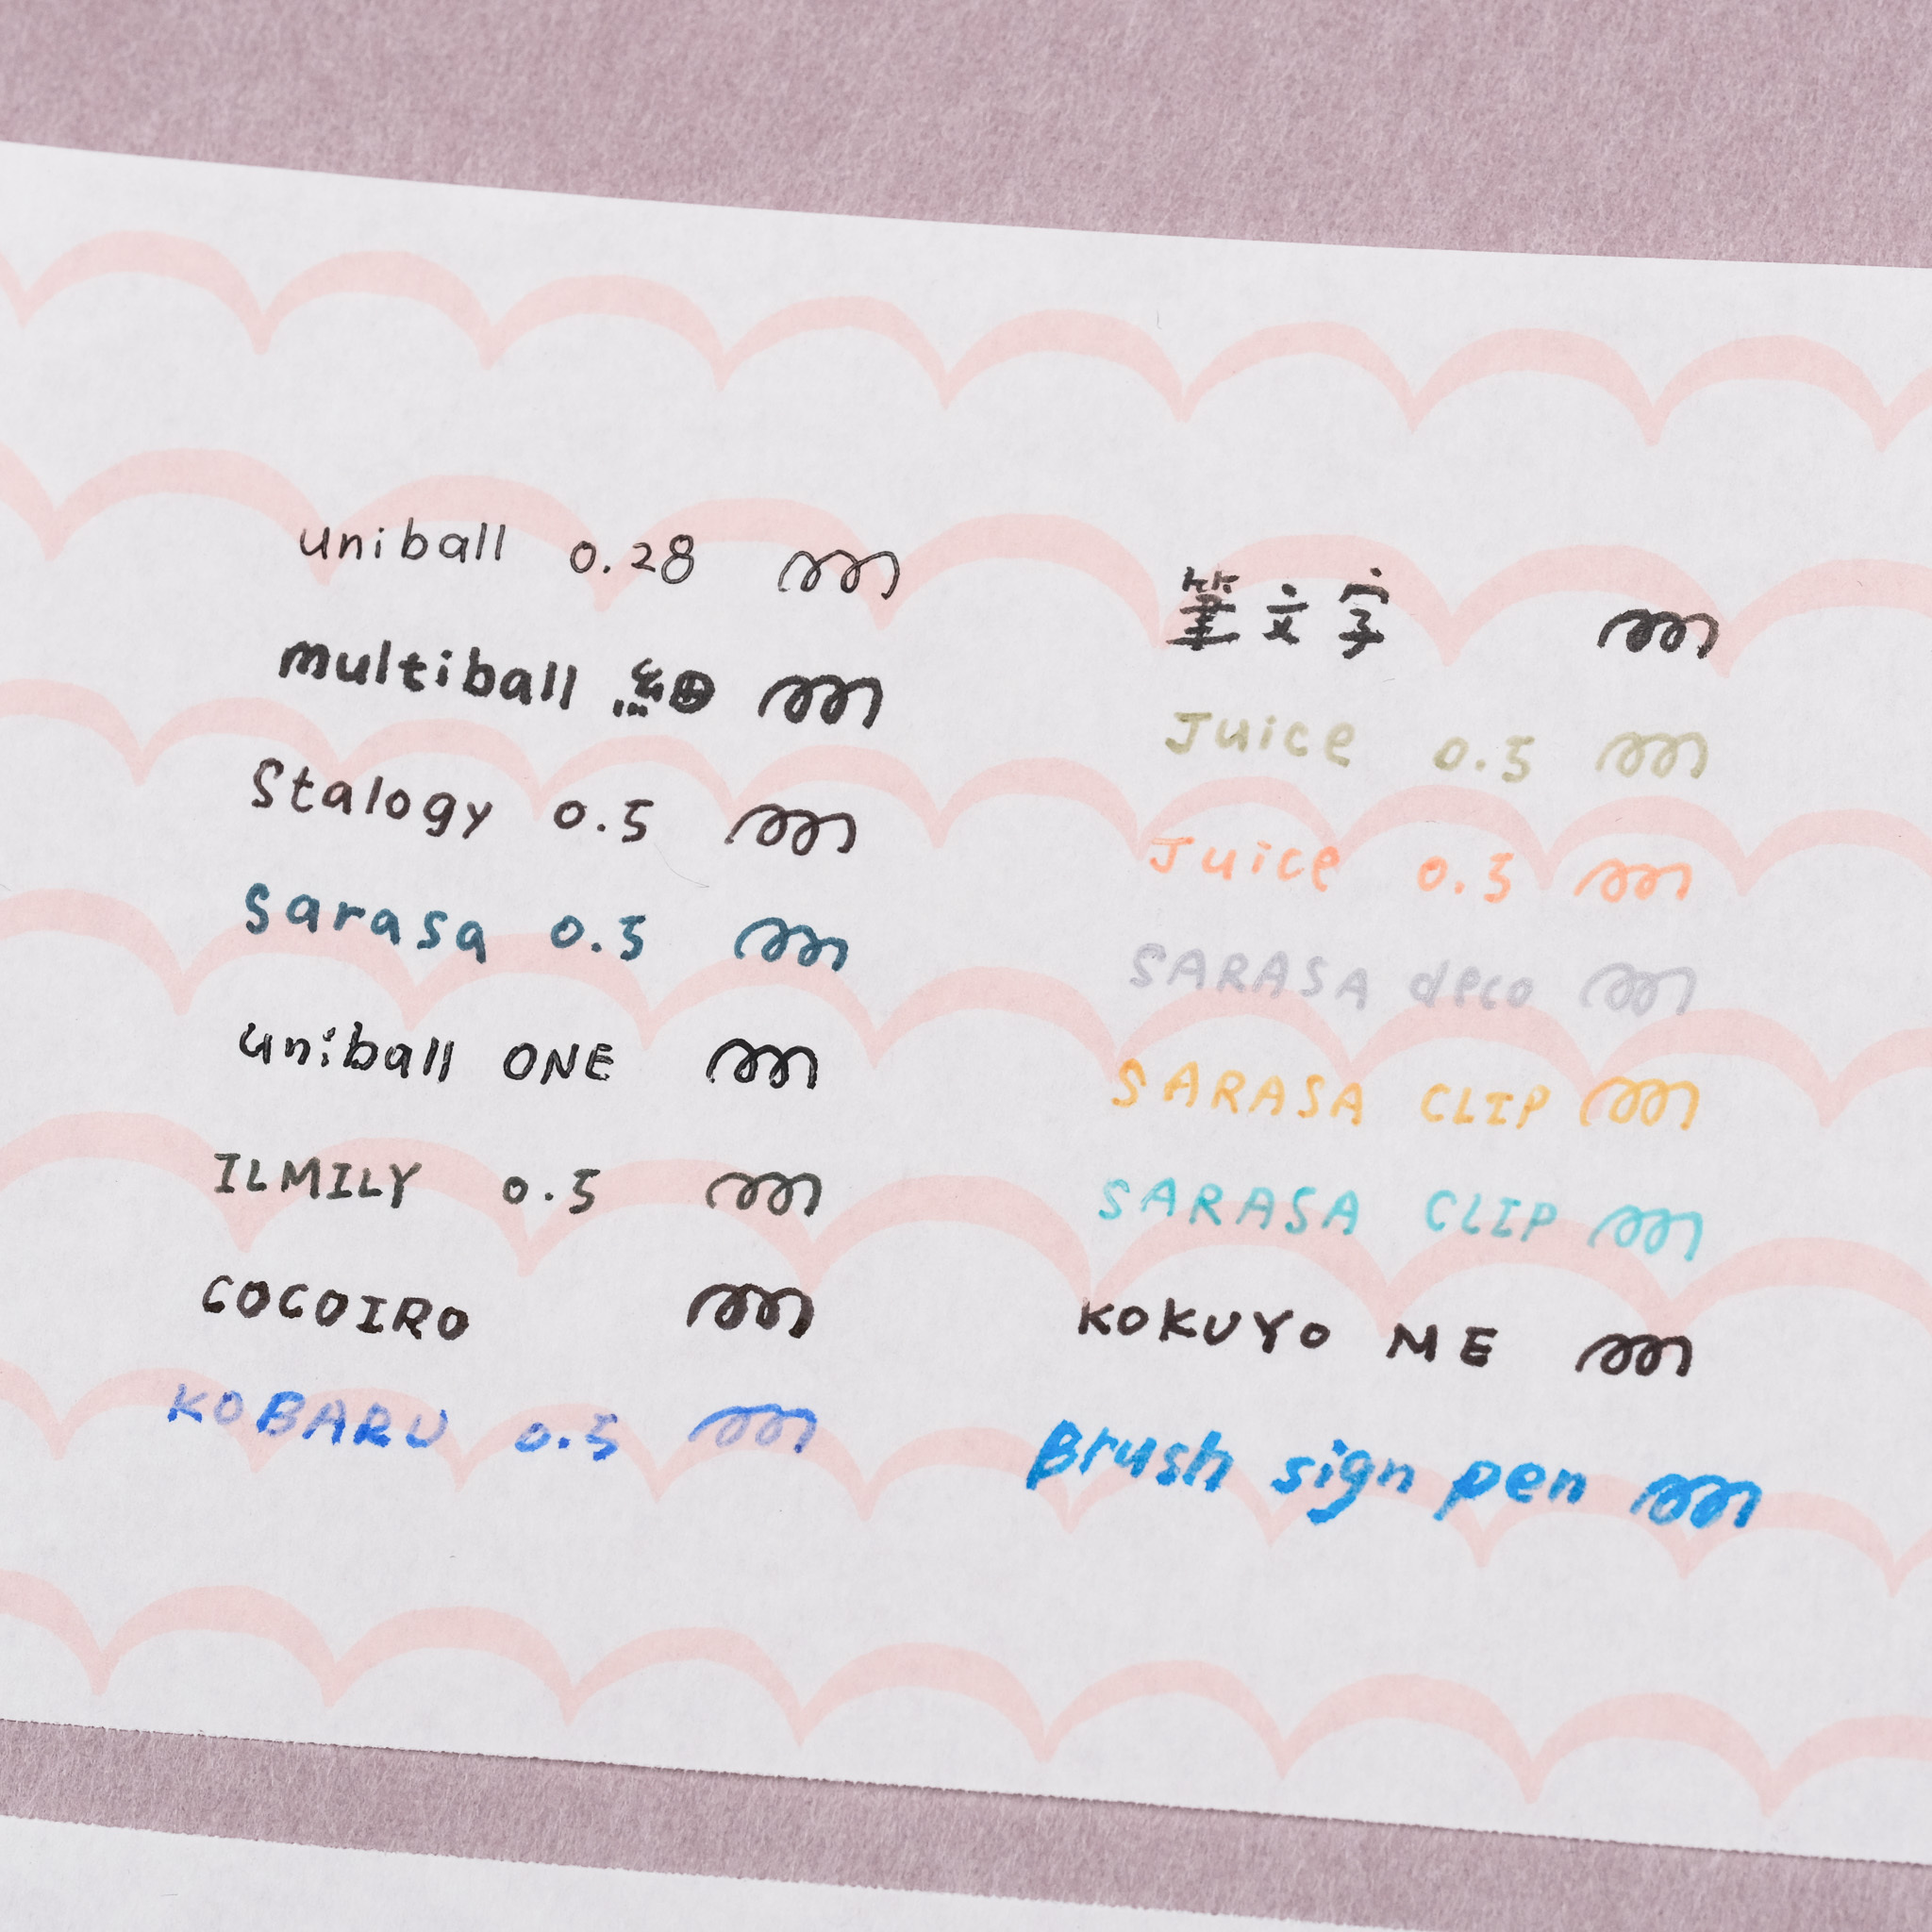 uniball 0.28
multiball 細
Stalogy 0.5
Sarasa 0.5
uniball ONE
ILMILY 0.5
COCOIRO
KOBARU 0.5
筆文字
Juice 0.5
Juice 0.5
SARASA deco
SARASA CLIP
SARASA CLIP
KOKUYO ME
Brush sign pen